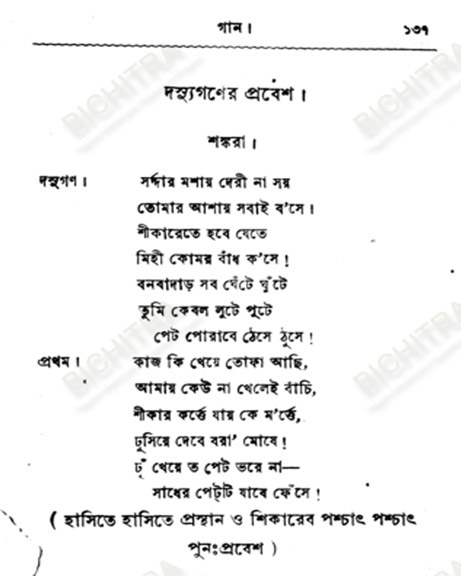 গান।
১৩৭
দস্যুগণের প্রবেশ।
শঙ্করা।
দস্যুগণ। সর্দ্দার মশায় দেরী না সয়
তোমার আশায় সবাই ব'সে।
শীকারেতে হবে যেতে
মিহী কোমর বাঁধ ক'সে!
বনবাদাড় সব ঘেঁটে ঘুঁটে
তুমি কেবল লুটে পুটে
পেট পোরাবে ঠেসে ঠুসে!
প্রথম। কাজ কি খেয়ে তোফা আছি,
আমায় কেউ না খেলেই বাঁচি,
শীকার কর্ত্তে যায় কে ম'র্ত্তে,
ঢুসিয়ে দেবে বরা' মোষে!
ঢুঁ খেয়ে ত পেট ভরে না—
সাধের পেট্‌টি যাবে ফেঁসে!
( হাসিতে হাসিতে প্রস্থান ও শিকারের পশ্চাৎ পশ্চাৎ
পুনঃপ্রবেশ )
BICHITRA
BICHITRA
BICHITRA
BICHITRA